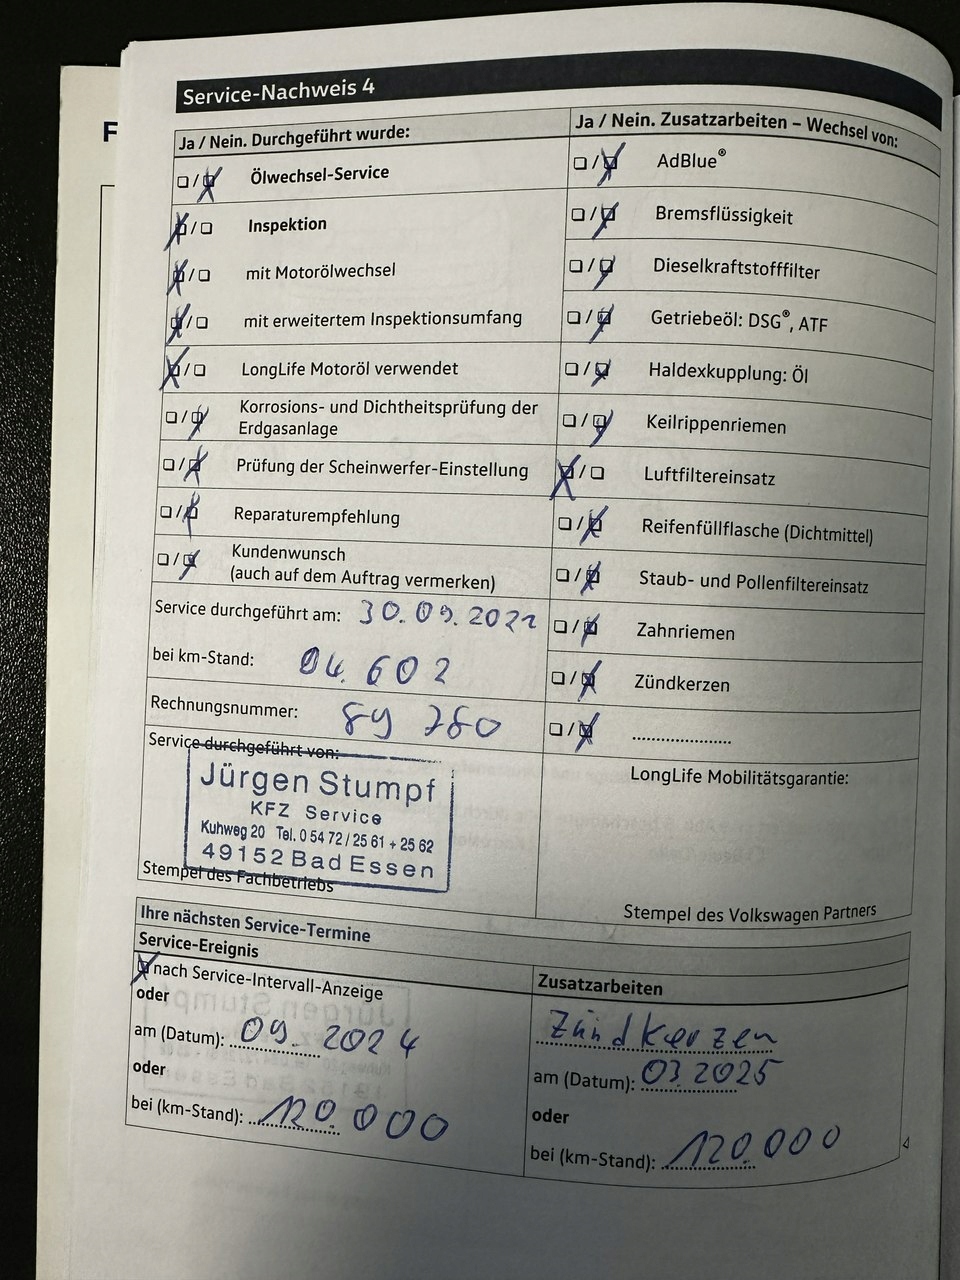 Service-Nachweis 4
Ja / Nein. Durchgeführt wurde:
❏ / ❏ Ölwechsel-Service
❏ / ❏ Inspektion
❏ / ❏ mit Motorölwechsel
❏ / ❏ mit erweitertem Inspektionsumfang
❏ / ❏ LongLife Motoröl verwendet
❏ / ❏ Korrosions- und Dichtheitsprüfung der
Erdgasanlage
❏ / ❏ Prüfung der Scheinwerfer-Einstellung
❏ / ❏ Reparaturempfehlung
❏ / ❏ Kundenwunsch
(auch auf dem Auftrag vermerken)
Service durchgeführt am: 30.09.2022
bei km-Stand: 04.602
Rechnungsnummer: 89 780
Service durchgeführt von:
Jürgen Stumpf
KFZ Service
Kuhweg 20 Tel. 0 54 72 / 25 61 + 25 62
49152 Bad Essen
Stempel des Fachbetriebs
Ja / Nein. Zusatzarbeiten – Wechsel von:
❏ / ❏ AdBlue®
❏ / ❏ Bremsflüssigkeit
❏ / ❏ Dieselkraftstofffilter
❏ / ❏ Getriebeöl: DSG®, ATF
❏ / ❏ Haldexkupplung: Öl
❏ / ❏ Keilrippenriemen
❏ / ❏ Luftfiltereinsatz
❏ / ❏ Reifenfüllflasche (Dichtmittel)
❏ / ❏ Staub- und Pollenfiltereinsatz
❏ / ❏ Zahnriemen
❏ / ❏ Zündkerzen
❏ / ❏ ....................
LongLife Mobilitätsgarantie:
Stempel des Volkswagen Partners
Ihre nächsten Service-Termine
Service-Ereignis
❏ nach Service-Intervall-Anzeige
oder
am (Datum): 09. 2024
oder
bei (km-Stand): 120.000
Zusatzarbeiten
Zündkerzen
am (Datum): 03.2025
oder
bei (km-Stand): 120.000